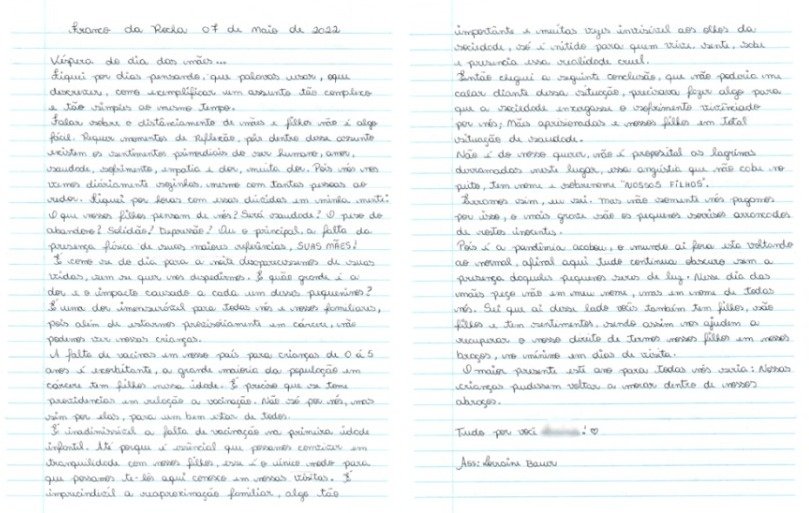 Franco da Rocha 07 de Maio de 2022
Véspera do dia das mães...
Fiquei por dias pensando, que palavras usar, o que
descrever, como exemplificar um assunto tão complexo
e tão simples ao mesmo tempo.
Falar sobre o distânciamento de mães e filhos não é algo
fácil. Requer momentos de reflexão, pois dentro desse assunto
existem os sentimentos primordiais do ser humano, amor,
saudade, sofrimento, empatia e dor, muita dor. Pois nós nos
vemos diáriamente sozinhas, mesmo com tantas pessoas ao
redor. Fiquei por horas com essas dúvidas em minha mente:
O que nossos filhos pensam de nós? Será saudade? O peso do
abandono? Solidão? Depressão? Ou o principal, a falta da
presença física de suas maiores referências, SUAS MÃES!
É como se do dia para a noite desaparecessemos de suas
vidas, sem se quer nos despedirmos. E quão grande é a
dor e o impacto causado a cada um desses pequeninos?
É uma dor imensurável para todas nós e nossos familiares,
pois além de estarmos provisoriamente em cárcere, não
podemos ver nossas crianças.
A falta de vacinas em nosso país para crianças de 0 á 5
anos é exorbitante, a grande maioria da população em
cárcere tem filhos nessa idade. É preciso que se tome
providencias em relação a vacinação. Não só por nós, mas
sim por elas, para um bem estar de todos.
É inadimissível a falta de vacinação na primeira idade
infantil. Até porque é essêncial que possamos conviver em
tranquilidade com nossos filhos, esse é o único modo para
que possamos te-lôs aqui conosco em nossas visitas. É
imprecindivel a reaproximação familiar, algo tão
importânte e muitas vezes invisível aos olhos da
sociedade, só é nitido para quem vive, sente, sabe
e presencia essa realidade cruel.
Então cheguei a seguinte conclusão, que não poderia me
calar diante dessa situação, precisava fazer algo para
que a sociedade enxergasse o sofrimento vivênciado
por nós; Mães aprisionadas e nossos filhos em total
situação de saudade.
Não é do nosso querer, não é proposital as lagrimas
derramadas neste lugar, essa angústia que não cabe no
peito, tem nome e sobrenome "NOSSOS FILHOS".
Erramos sim, eu sei. Mas não somente nós pagamos
por isso, o mais grave são os pequenos sorrisos arrancados
de rostos inocentes.
Pois é a pandêmia acabou, o mundo aí fora está voltando
ao normal, afinal aqui tudo continua obscuro sem a
presença daqueles pequenos seres de luz. Nesse dia das
mães peço não em meu nome, mas em nome de todas
nós. Sei que aí desse lado vocês também tem filhos, são
filhos e tem sentimentos, sendo assim nos ajudem a
recuperar o nosso direito de termos nossos filhos em nossos
braços, no mínimo em dias de visita.
O maior presente este ano para todas nós seria: Nossas
crianças pudessem voltar a morar dentro de nossos
abraços.
Tudo por você ! ♡
Ass: Lorraine Bauer